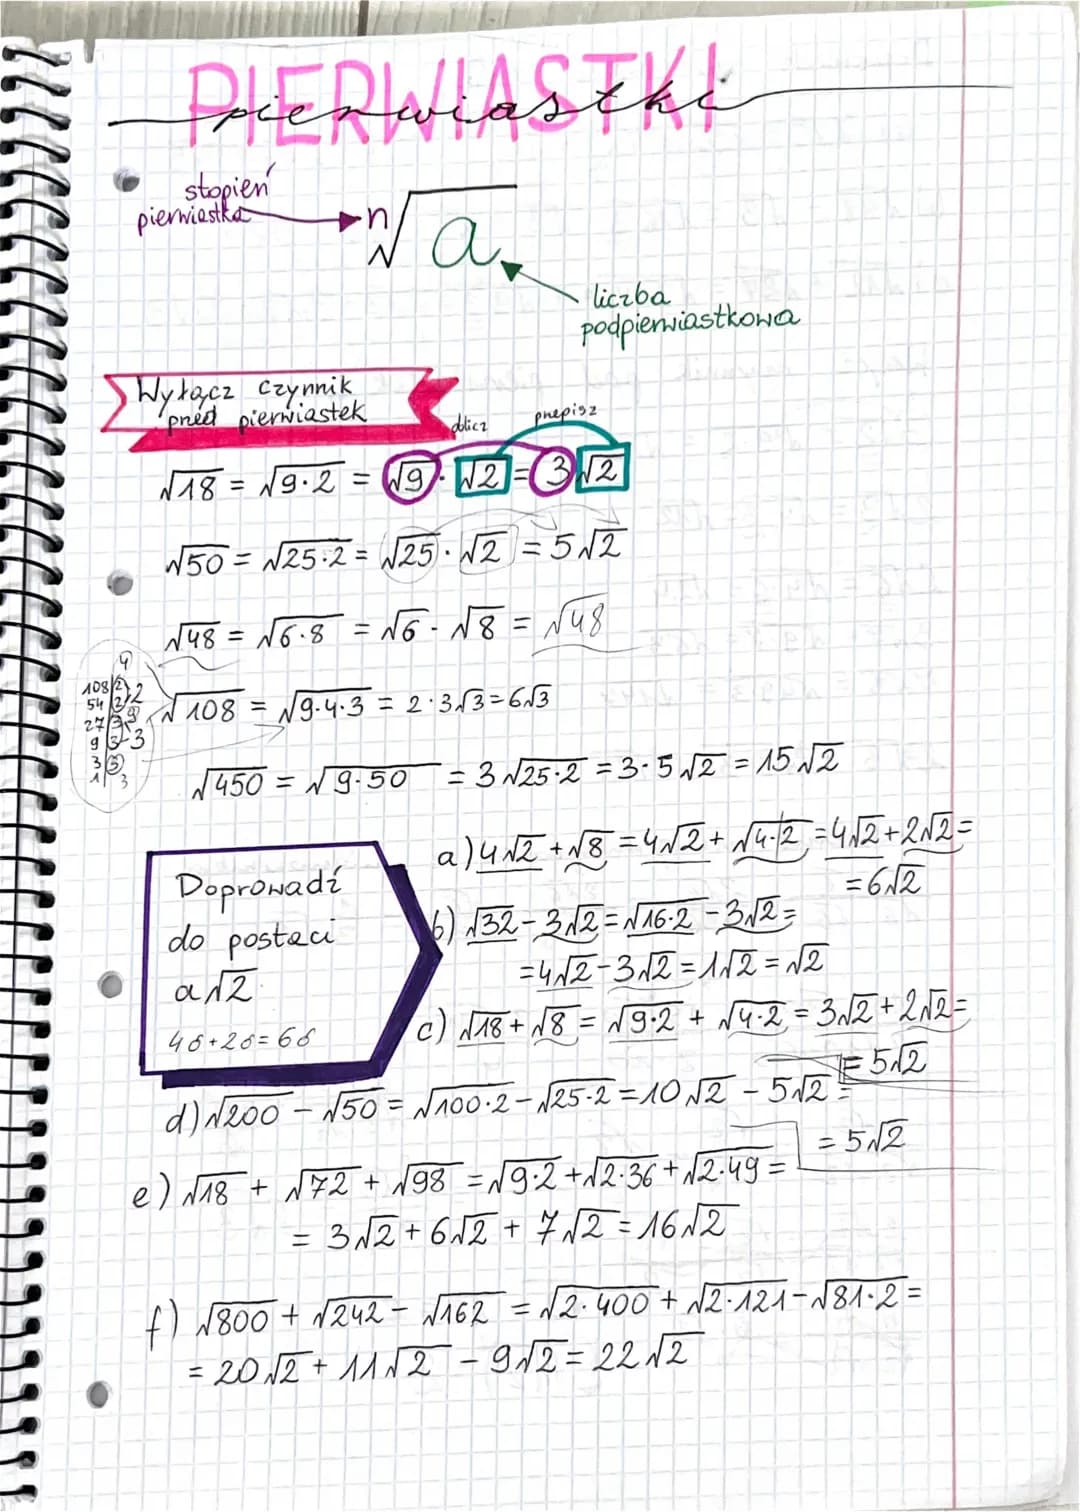 PIERWIASTKI
pierwiastki
stopień
pierwiastka
n√a
liczba
podpierwiastkowa
Wyłącz czynnik
przed pierwiastek
oblicz
przepisz
√18 = √9·2 = √9 · √2 = 3√2
√50 = √25·2 = √25 · √2 = 5√2
√48 = √6·8 = √6 · √8 = √48
√108 = √9·4·3 = 2·3√3 = 6√3
4
108|2
54|2 2
27|3 9
9|3 3
3|3
1| 3
√450 = √9·50 = 3√25·2 = 3·5√2 = 15√2
Doprowadź
do postaci
a√2
46+26=66
a) 4√2 + √8 = 4√2 + √4·2 = 4√2 + 2√2 =
= 6√2
b) √32 - 3√2 = √16·2 - 3√2 =
= 4√2 - 3√2 = 1√2 = √2
c) √18 + √8 = √9·2 + √4·2 = 3√2 + 2√2 =
= 5√2
d) √200 - √50 = √100·2 - √25·2 = 10√2 - 5√2 =
= 5√2
e) √18 + √72 + √98 = √9·2 + √2·36 + √2·49 =
= 3√2 + 6√2 + 7√2 = 16√2
f) √800 + √242 - √162 = √2·400 + √2·121 - √81·2 =
= 20√2 + 11√2 - 9√2 = 22√2